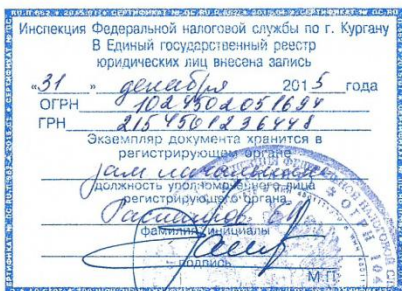 Инспекция Федеральной налоговой службы по г. Кургану
В Единый государственный реестр
юридических лиц внесена запись
«31» декабря 2015 года
ОГРН 1024502051694
ГРН 2154501236448
Экземпляр документа хранится в
регистрирующем органе
зам начальника
должность уполномоченного лица
регистрирующего органа
фамилия, инициалы
подпись
М.П.